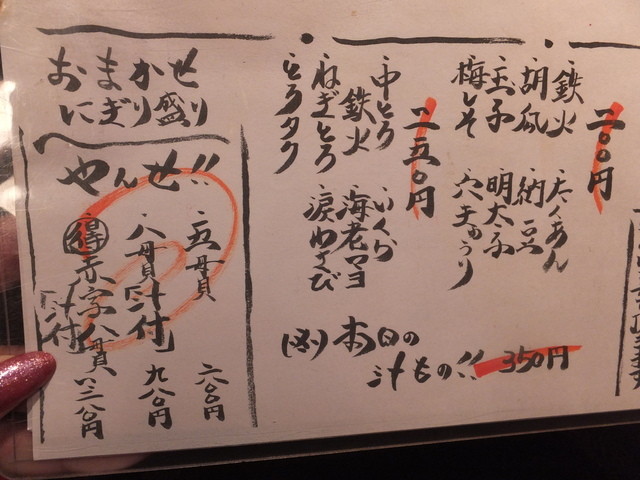 二〇〇円
鉄火 たくあん
胡瓜 納豆
玉子 明太子
梅しそ 穴きゅうり
二五〇円
中とろ いくら
鉄火 海老マヨ
ねぎとろ 涙わさび
とろタク
本日の
汁もの!! 350円
おまかせ
にぎり盛り
やんせ!!
五貫 六〇〇円
八貫「汁付」 九八〇円
得 赤字八貫「汁付」